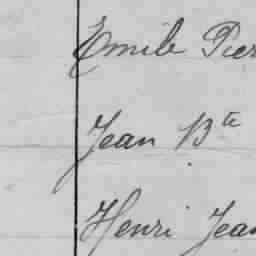 Emile Pier
Jean Bte
Henri Jean